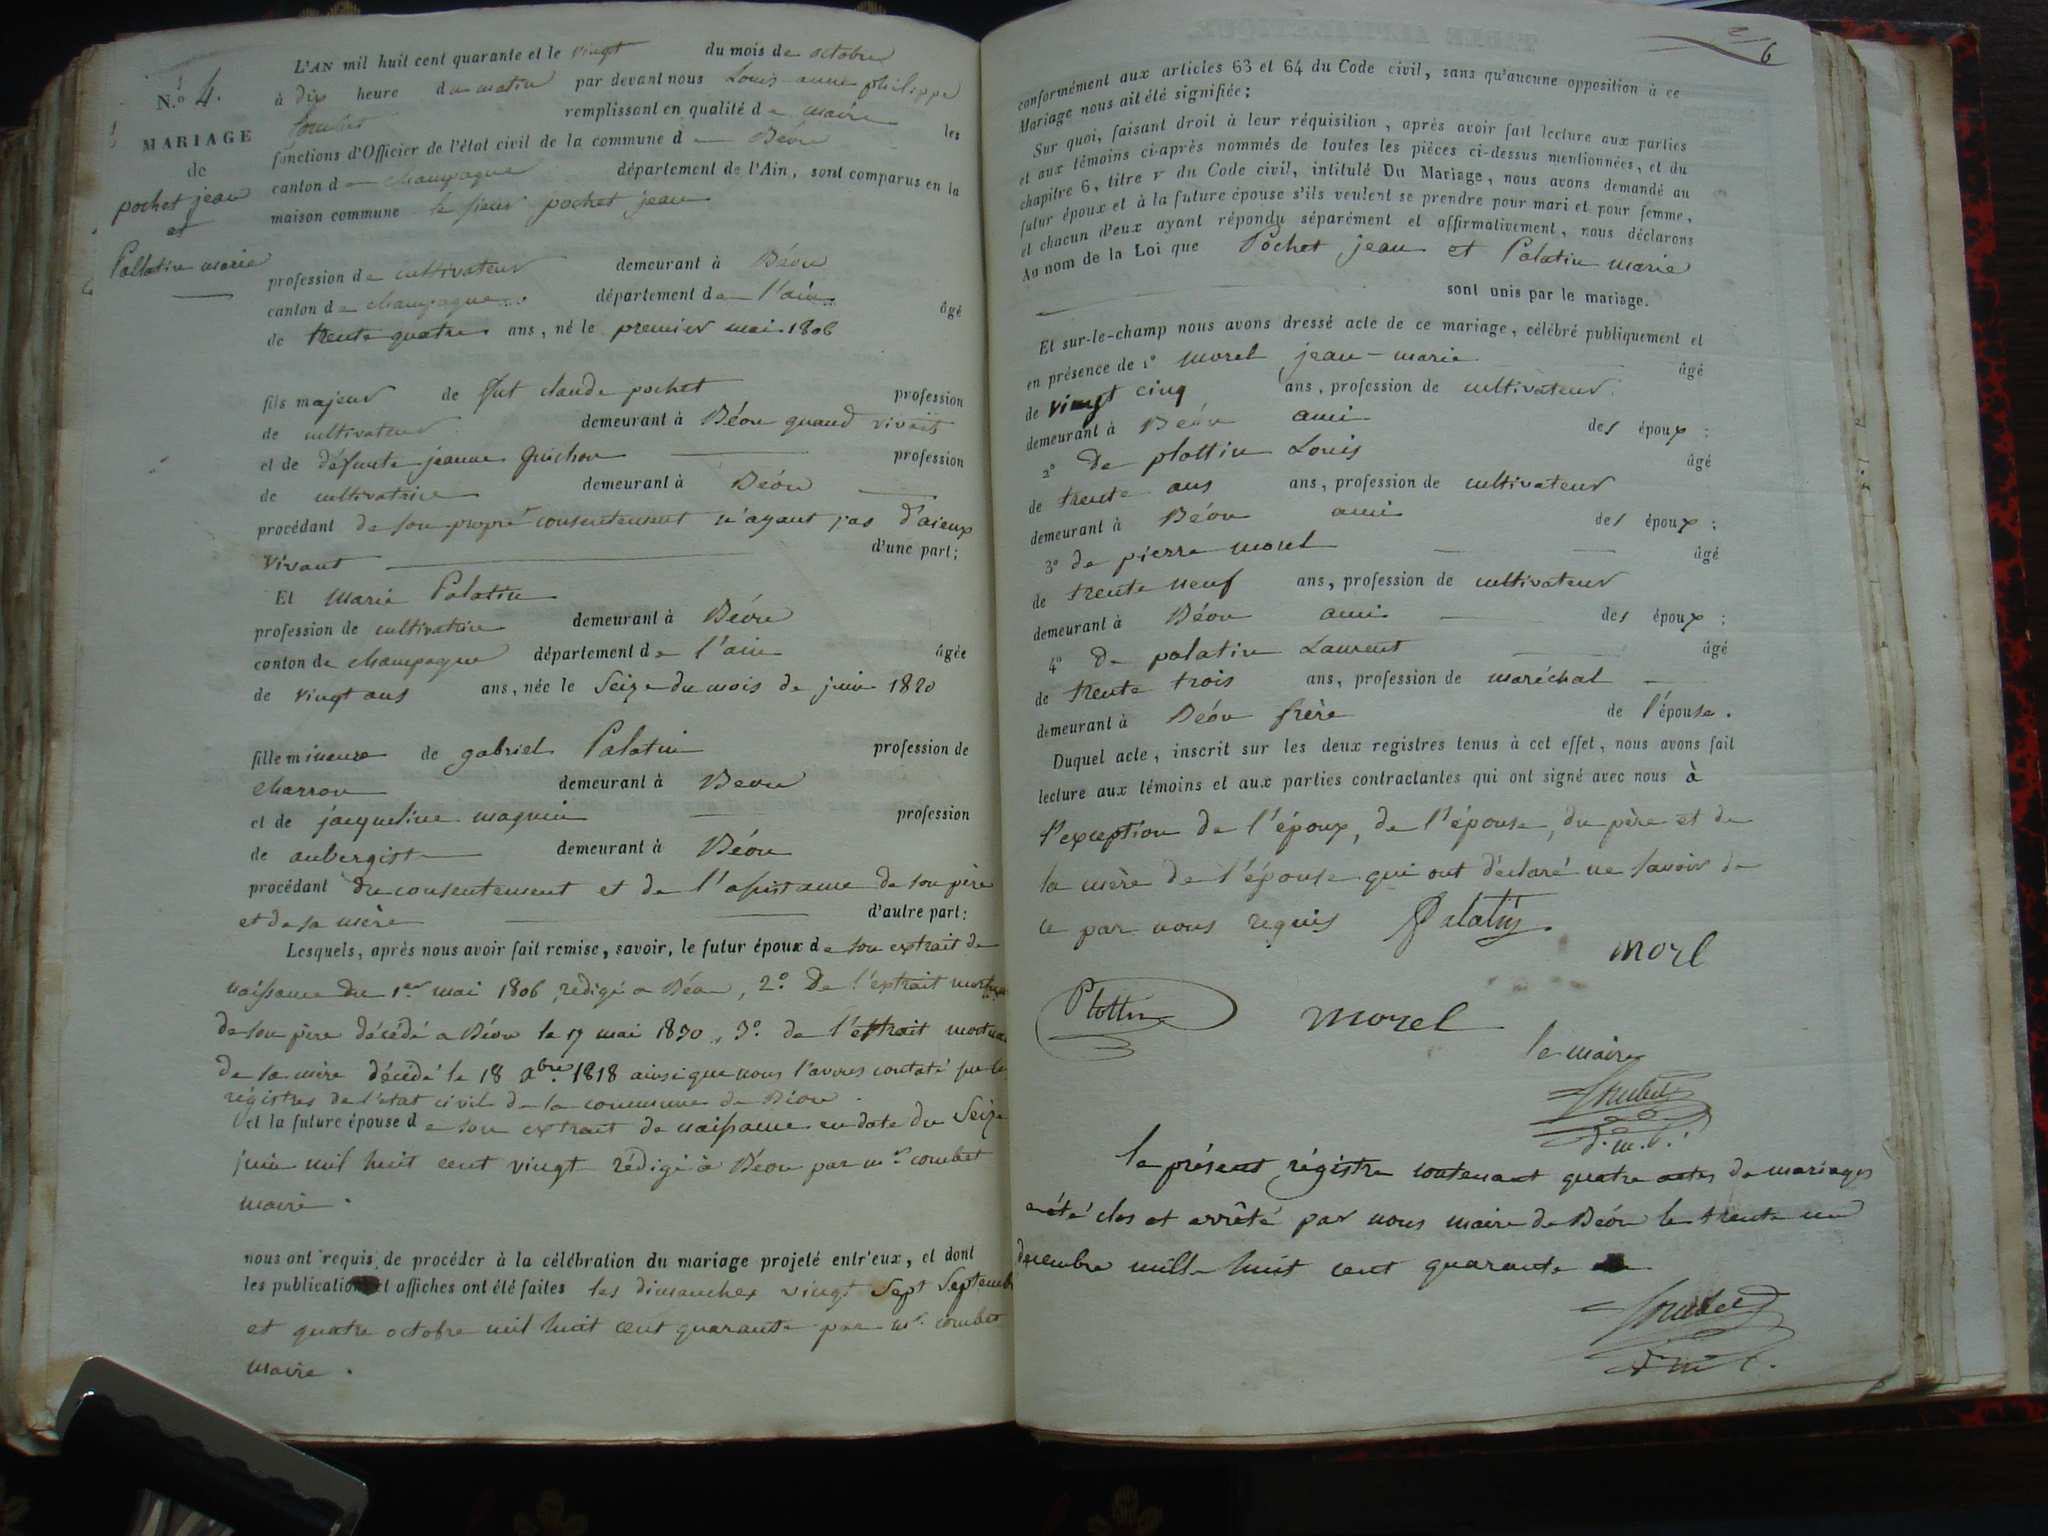 N.º 4.
MARIAGE
de
pochet jean
et
Pallatin marie
L'AN mil huit cent quarante et le vingt du mois de octobre
à dix heure du matin par devant nous Louis anne philippe
Combet remplissant en qualité de maire les
fonctions d'Officier de l'état civil de la commune d Béon
canton de champagne département de l'Ain, sont comparus en la
maison commune le sieur pochet jean
profession de cultivateur demeurant à Béon
canton de champagne département de l'ain âgé
de trente quatre ans, né le premier mai 1806
fils majeur de fut claude pochet profession
de cultivateur demeurant à Béon quand vivait
et de défunte jeanne guichon profession
de cultivatrice demeurant à Béon
procédant de son propre consentement n'ayant pas d'aieux
vivant d'une part;
Et marie Palatin
profession de cultivatrice demeurant à Béon
canton de champagne département de l'ain âgée
de vingt ans ans, née le Seize du mois de juin 1820
fille mineure de gabriel Palatin profession de
charron demeurant à Beon
et de jacqueline magnin profession
de aubergiste demeurant à Béon
procédant du consentement et de l'assistance de son père
et de sa mère d'autre part:
Lesquels, après nous avoir fait remise, savoir, le futur époux de son extrait de
naissance du 1er mai 1806 rédigé a Béon, 2.º De l'extrait mortuaire
de son père décédé a Béon le 17 mai 1830, 3.º de l'extrait mortuaire
de sa mère décédé le 18 Xbre 1818 ainsi que nous l'avons contaté sur les
régistres de l'etat civil de la commune de Béon.
et la future épouse de son extrait de naissance en date du Seize
juin mil huit cent vingt rédigé à Béon par mr combet
maire.
nous ont requis de procéder à la célébration du mariage projeté entr'eux, et dont
les publications et affiches ont été faites les dimanches vingt Sept Septembre
et quatre octobre mil huit cent quarante par mr. combet
maire.
6
conformément aux articles 63 et 64 du Code civil, sans qu'aucune opposition à ce
Mariage nous ait été signifiée;
Sur quoi, faisant droit à leur réquisition, après avoir fait lecture aux parties
et aux témoins ci-après nommés de toutes les pièces ci-dessus mentionnées, et du
chapitre 6, titre v du Code civil, intitulé Du Mariage, nous avons demandé au
futur époux et à la future épouse s'ils veulent se prendre pour mari et pour femme,
et chacun d'eux ayant répondu séparément et affirmativement, nous déclarons
Au nom de la Loi que Pochet jean et Palatin marie
sont unis par le mariage.
Et sur-le-champ nous avons dressé acte de ce mariage, célébré publiquement et
en présence de 1º morel jean-marie âgé
de vingt cinq ans, profession de cultivateur
demeurant à Béon ami des époux;
2º de plottin Louis âgé
de trente ans ans, profession de cultivateur
demeurant à Béon ami des époux;
3º de pierre morel âgé
de trente neuf ans, profession de cultivateur
demeurant à Béon ami des époux;
4º De palatin Laurent âgé
de trente trois ans, profession de maréchal
demeurant à Béon frère de l'épouse.
Duquel acte, inscrit sur les deux registres tenus à cet effet, nous avons fait
lecture aux témoins et aux parties contractantes qui ont signé avec nous à
l'exception de l'époux, de l'épouse, du père et de
la mère de l'épouse qui ont déclaré ne savoir de
ce par nous requis Palatin
morl
Plottin morel
le maire
Combet
d. m. p.
le présent régistre contenant quatre actes de mariages
a été clos et arrêté par nous maire de Béon le trente un
decembre mille huit cent quarante
Combet